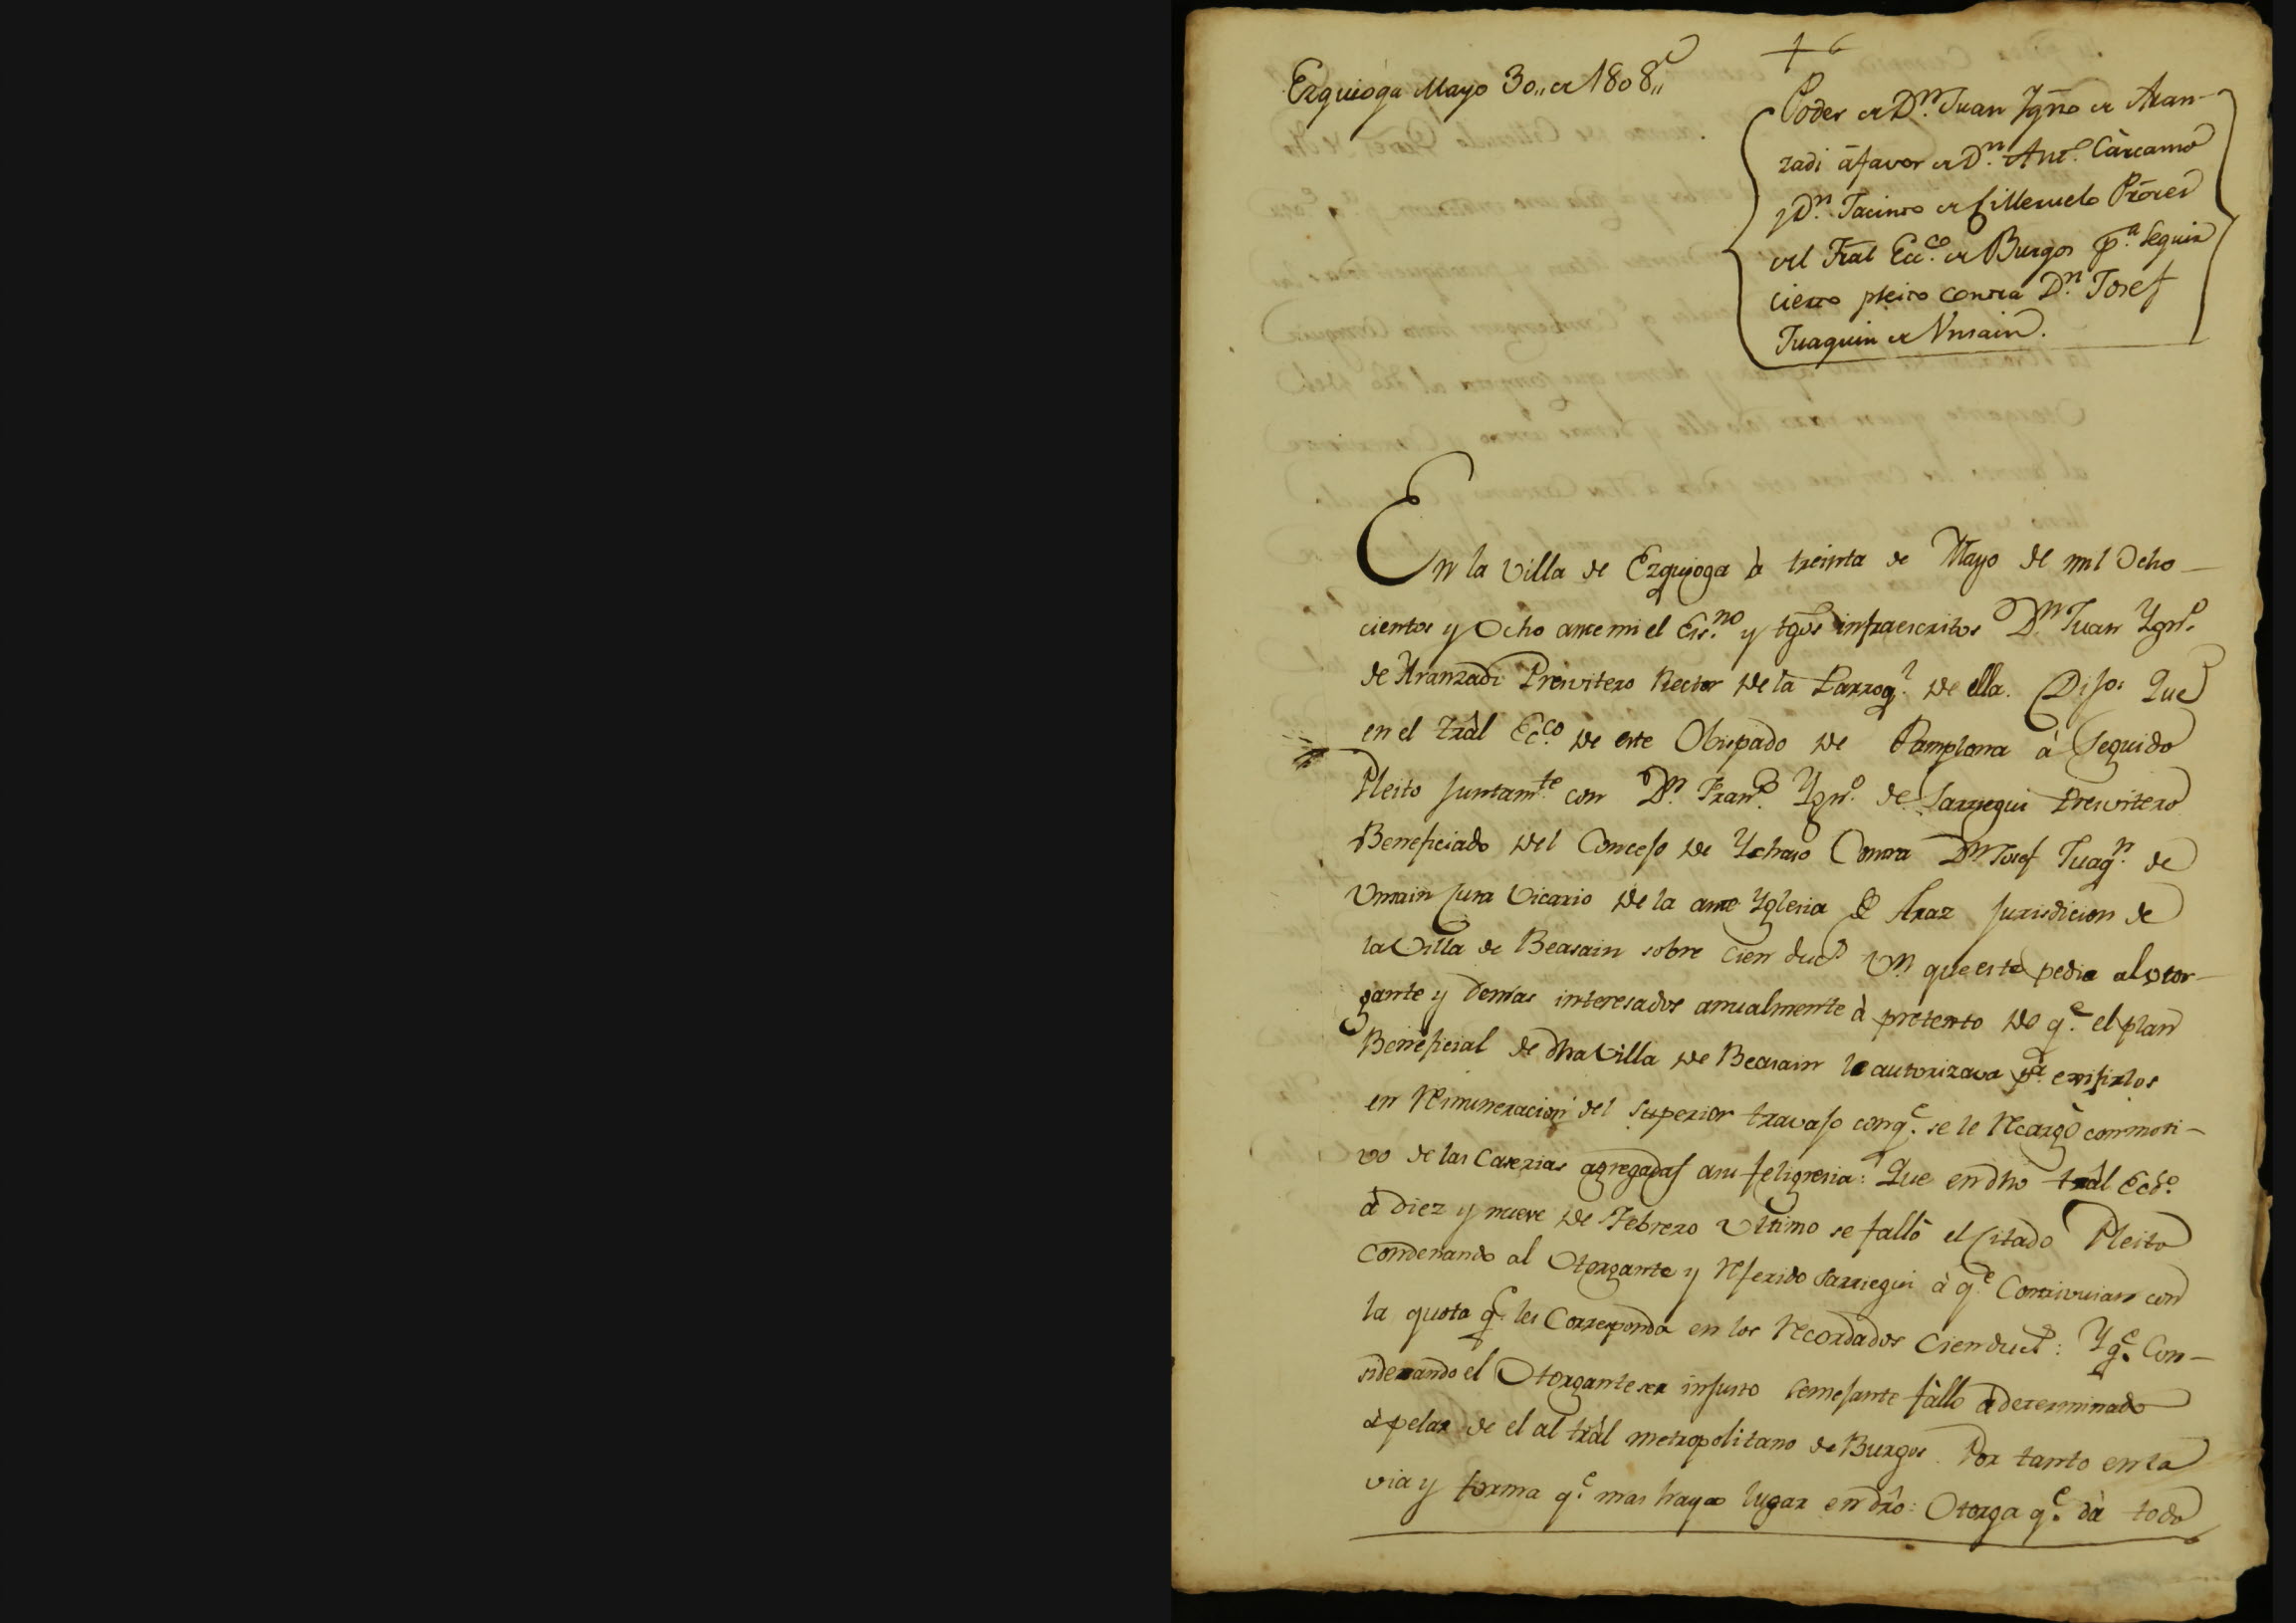 Ezquioga Mayo 30,, de 1808,,
Poder de Dn. Juan Ygno de Aran-
zadi á favor de Dn. Anto. Càrcamo
y Dn. Jacinto de Lilleruelo Prores
del Tral Ecco. de Burgos pa. seguir
cierto pleito contra Dn. Josef
Juaquin de Unsain.
En la Villa de Ezquioga à treinta de Mayo de mil Ocho-
cientos y Ocho ante mi el Esno. y tgos infraescritos Dn Juan Ygno.
de Aranzadi Presvitero Rector de la Parroql. de ella. Dijo: Que
en el trâl Ecco. de este Obispado de Pamplona à seguido
Pleito juntamte. con Dn. Franco. Ygno. de Sarriegui Presvitero
Beneficiado del Concejo de Ychaso Contra Dn Josef Juaqn. de
Unsain Cura Vicario de la ante Yglesia de Araz jurisdicion de
la Villa de Beasain sobre cien ducs Vn que este pedia al otor-
gante y demas interesados anualmente à pretexto de qe. el plan
Beneficial de dha Villa de Beasain le autorizava pa. exijirlos
en Remuneracion del superior travajo con qe. se le Recargò con moti-
vo de las Caserias agregadas a su feligresia: Que en dho trâl Ecco.
à diez y nueve de Febrero Ultimo se fallò el Citado Pleito
Condenando al Otorgante y Referido Sarriegui à qe Contrivuian con
la quota qe. les Corresponda en los Recordados Cien ducs: Y qe. Con-
siderando el Otorgante ser injusto semejante fallo à determinado
àpelar de el al trâl metropolitano de Burgos. Por tanto en la
via y forma qe. mas haya lugar en dro: Otorga qe. dà todo